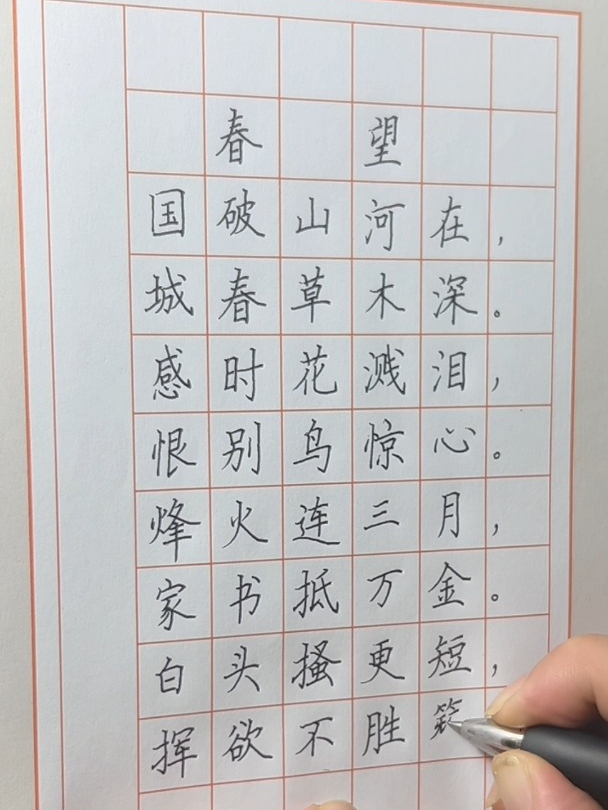 春望
国破山河在，
城春草木深。
感时花溅泪，
恨别鸟惊心。
烽火连三月，
家书抵万金。
白头搔更短，
挥欲不胜